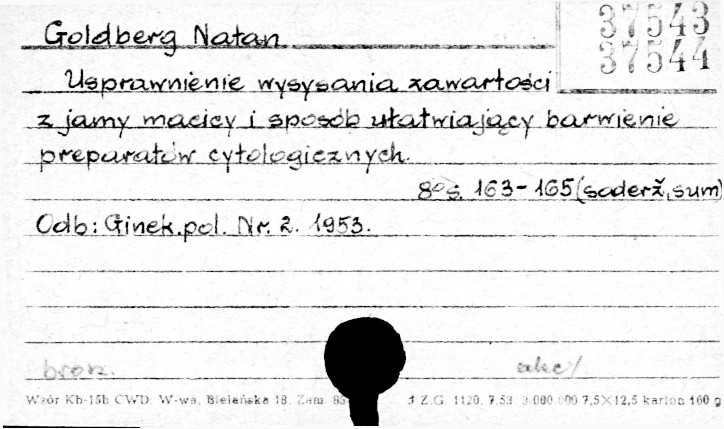 Goldberg Natan
37543
37544
Usprawnienie wysysania zawartości
z jamy macicy i sposób ułatwiający barwienie
preparatów cytologicznych.
8° s. 163-165 (soderž, sum)
Odb: Ginek. pol. Nr. 2. 1953.
brosz.
Wzór Kb-15b CWD, W-wa, Bielańska 18. Zam. 83 Z.G. 1120, 7.53 3.000.000 7,5×12,5 karton 160 g